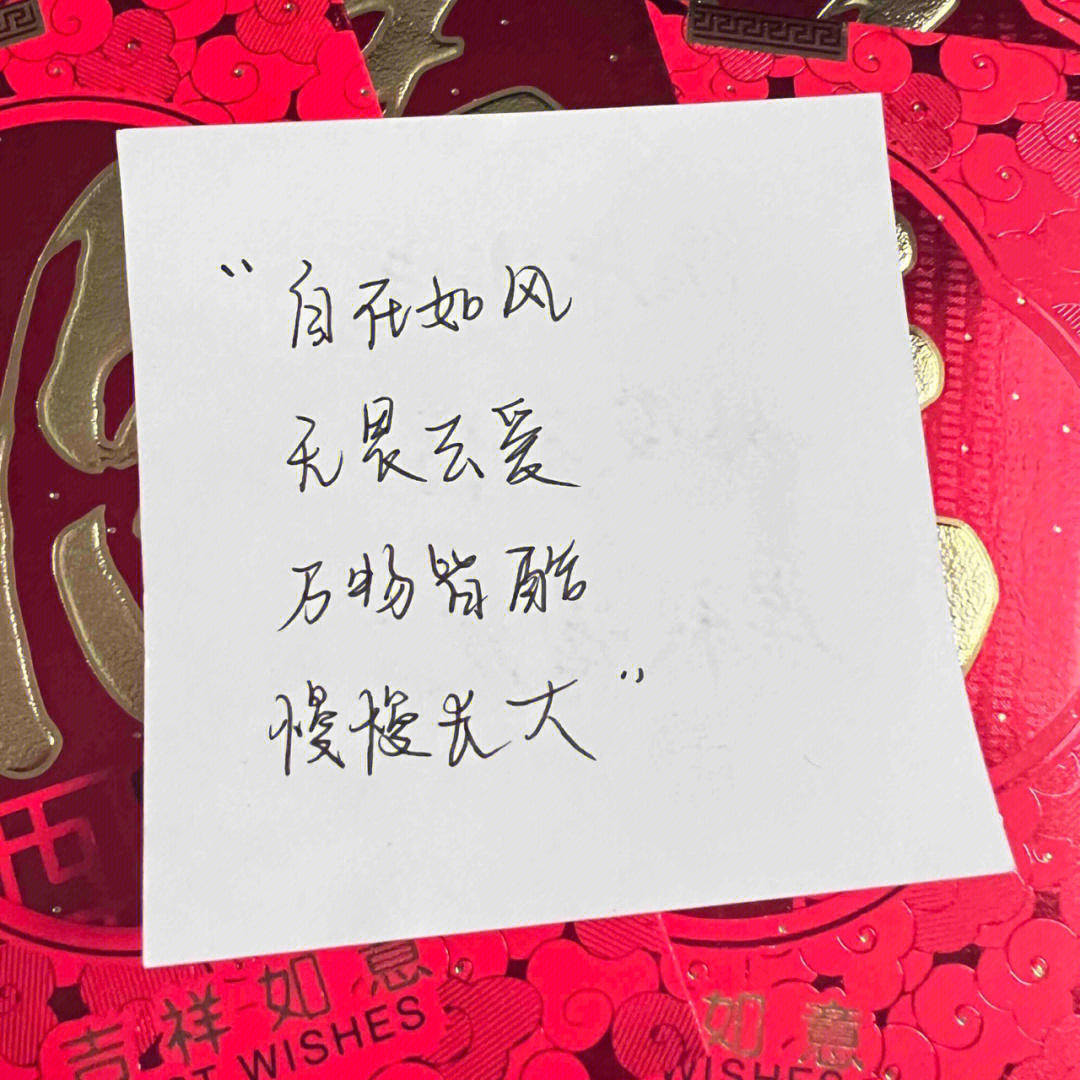 “自在如风
无畏去爱
万物皆酷
慢慢长大”
吉祥如意
ST WISHES
如意
WISHES